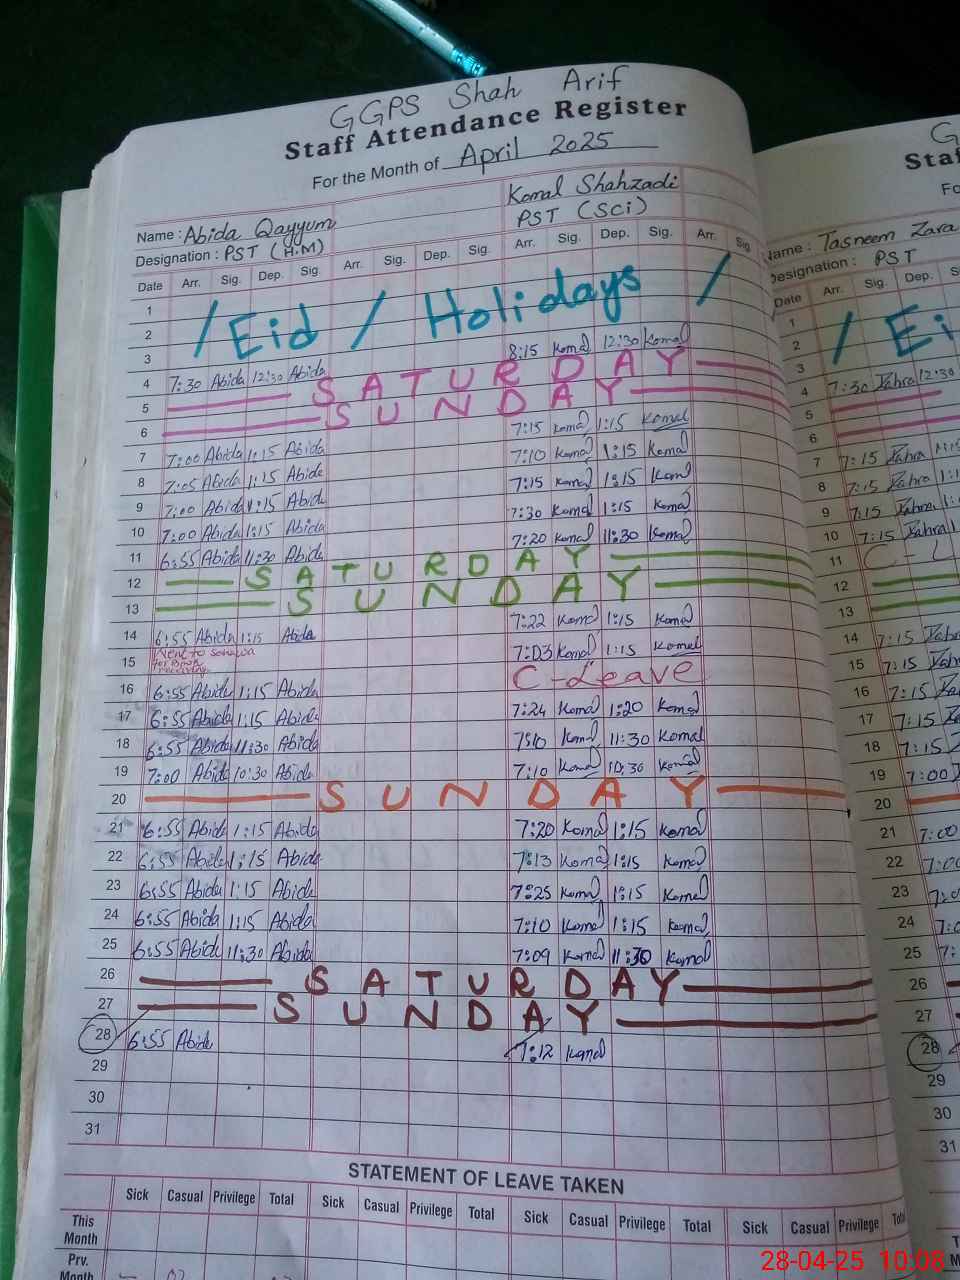 GGPS Shah Arif
Staff Attendance Register
For the Month of April 2025
Name : Abida Qayyum Komal Shahzadi
Designation : PST (H.M) PST (Sci)
Date Arr. Sig. Dep. Sig. Arr. Sig. Dep. Sig. Arr. Sig. Dep. Sig. Arr. Sig.
1
2 / Eid / Holidays /
3
4 7:30 Abida 12:30 Abida 8:15 Komal 12:30 Komal
5 SATURDAY
6 SUNDAY
7 7:00 Abida 1:15 Abida 7:15 Komal 1:15 Komal
8 7:05 Abida 1:15 Abida 7:10 Komal 1:15 Komal
9 7:00 Abida 1:15 Abida 7:15 Komal 1:15 Komal
10 7:00 Abida 1:15 Abida 7:30 Komal 1:15 Komal
11 6:55 Abida 11:30 Abida 7:20 Komal 11:30 Komal
12 SATURDAY
13 SUNDAY
14 6:55 Abida 1:15 Abida 7:22 Komal 1:15 Komal
15 Went to Sohawa for Book receiving 7:03 Komal 1:15 Komal
16 6:55 Abida 1:15 Abida C-Leave
17 6:55 Abida 1:15 Abida 7:24 Komal 1:20 Komal
18 6:55 Abida 11:30 Abida 7:10 Komal 11:30 Komal
19 7:00 Abida 10:30 Abida 7:10 Komal 10:30 Komal
20 SUNDAY
21 6:55 Abida 1:15 Abida 7:20 Komal 1:15 Komal
22 6:55 Abida 1:15 Abida 7:13 Komal 1:15 Komal
23 6:55 Abida 1:15 Abida 7:25 Komal 1:15 Komal
24 6:55 Abida 1:15 Abida 7:10 Komal 1:15 Komal
25 6:55 Abida 11:30 Abida 7:09 Komal 11:30 Komal
26 SATURDAY
27 SUNDAY
28 6:55 Abida 7:12 Komal
29
30
31
STATEMENT OF LEAVE TAKEN
Sick Casual Privilege Total Sick Casual Privilege Total Sick Casual Privilege Total Sick Casual Privilege
This Month
Prv. Month
Name: Tasneem Zara
Designation: PST
Date Arr. Sig. Dep.
1
2
3
4 7:30 Zahra 12:30
5
6
7 7:15 Zahra
8 7:15 Zahra
9 7:15 Zahra
10 7:15 Zahra
11 C - L
12
13
14 7:15
15 7:15
16 7:15
17 7:15
18 7:15
19 7:00
20
21 7:00
22
23
24
25
26
27
28
29
30
31
28-04-25 10:08